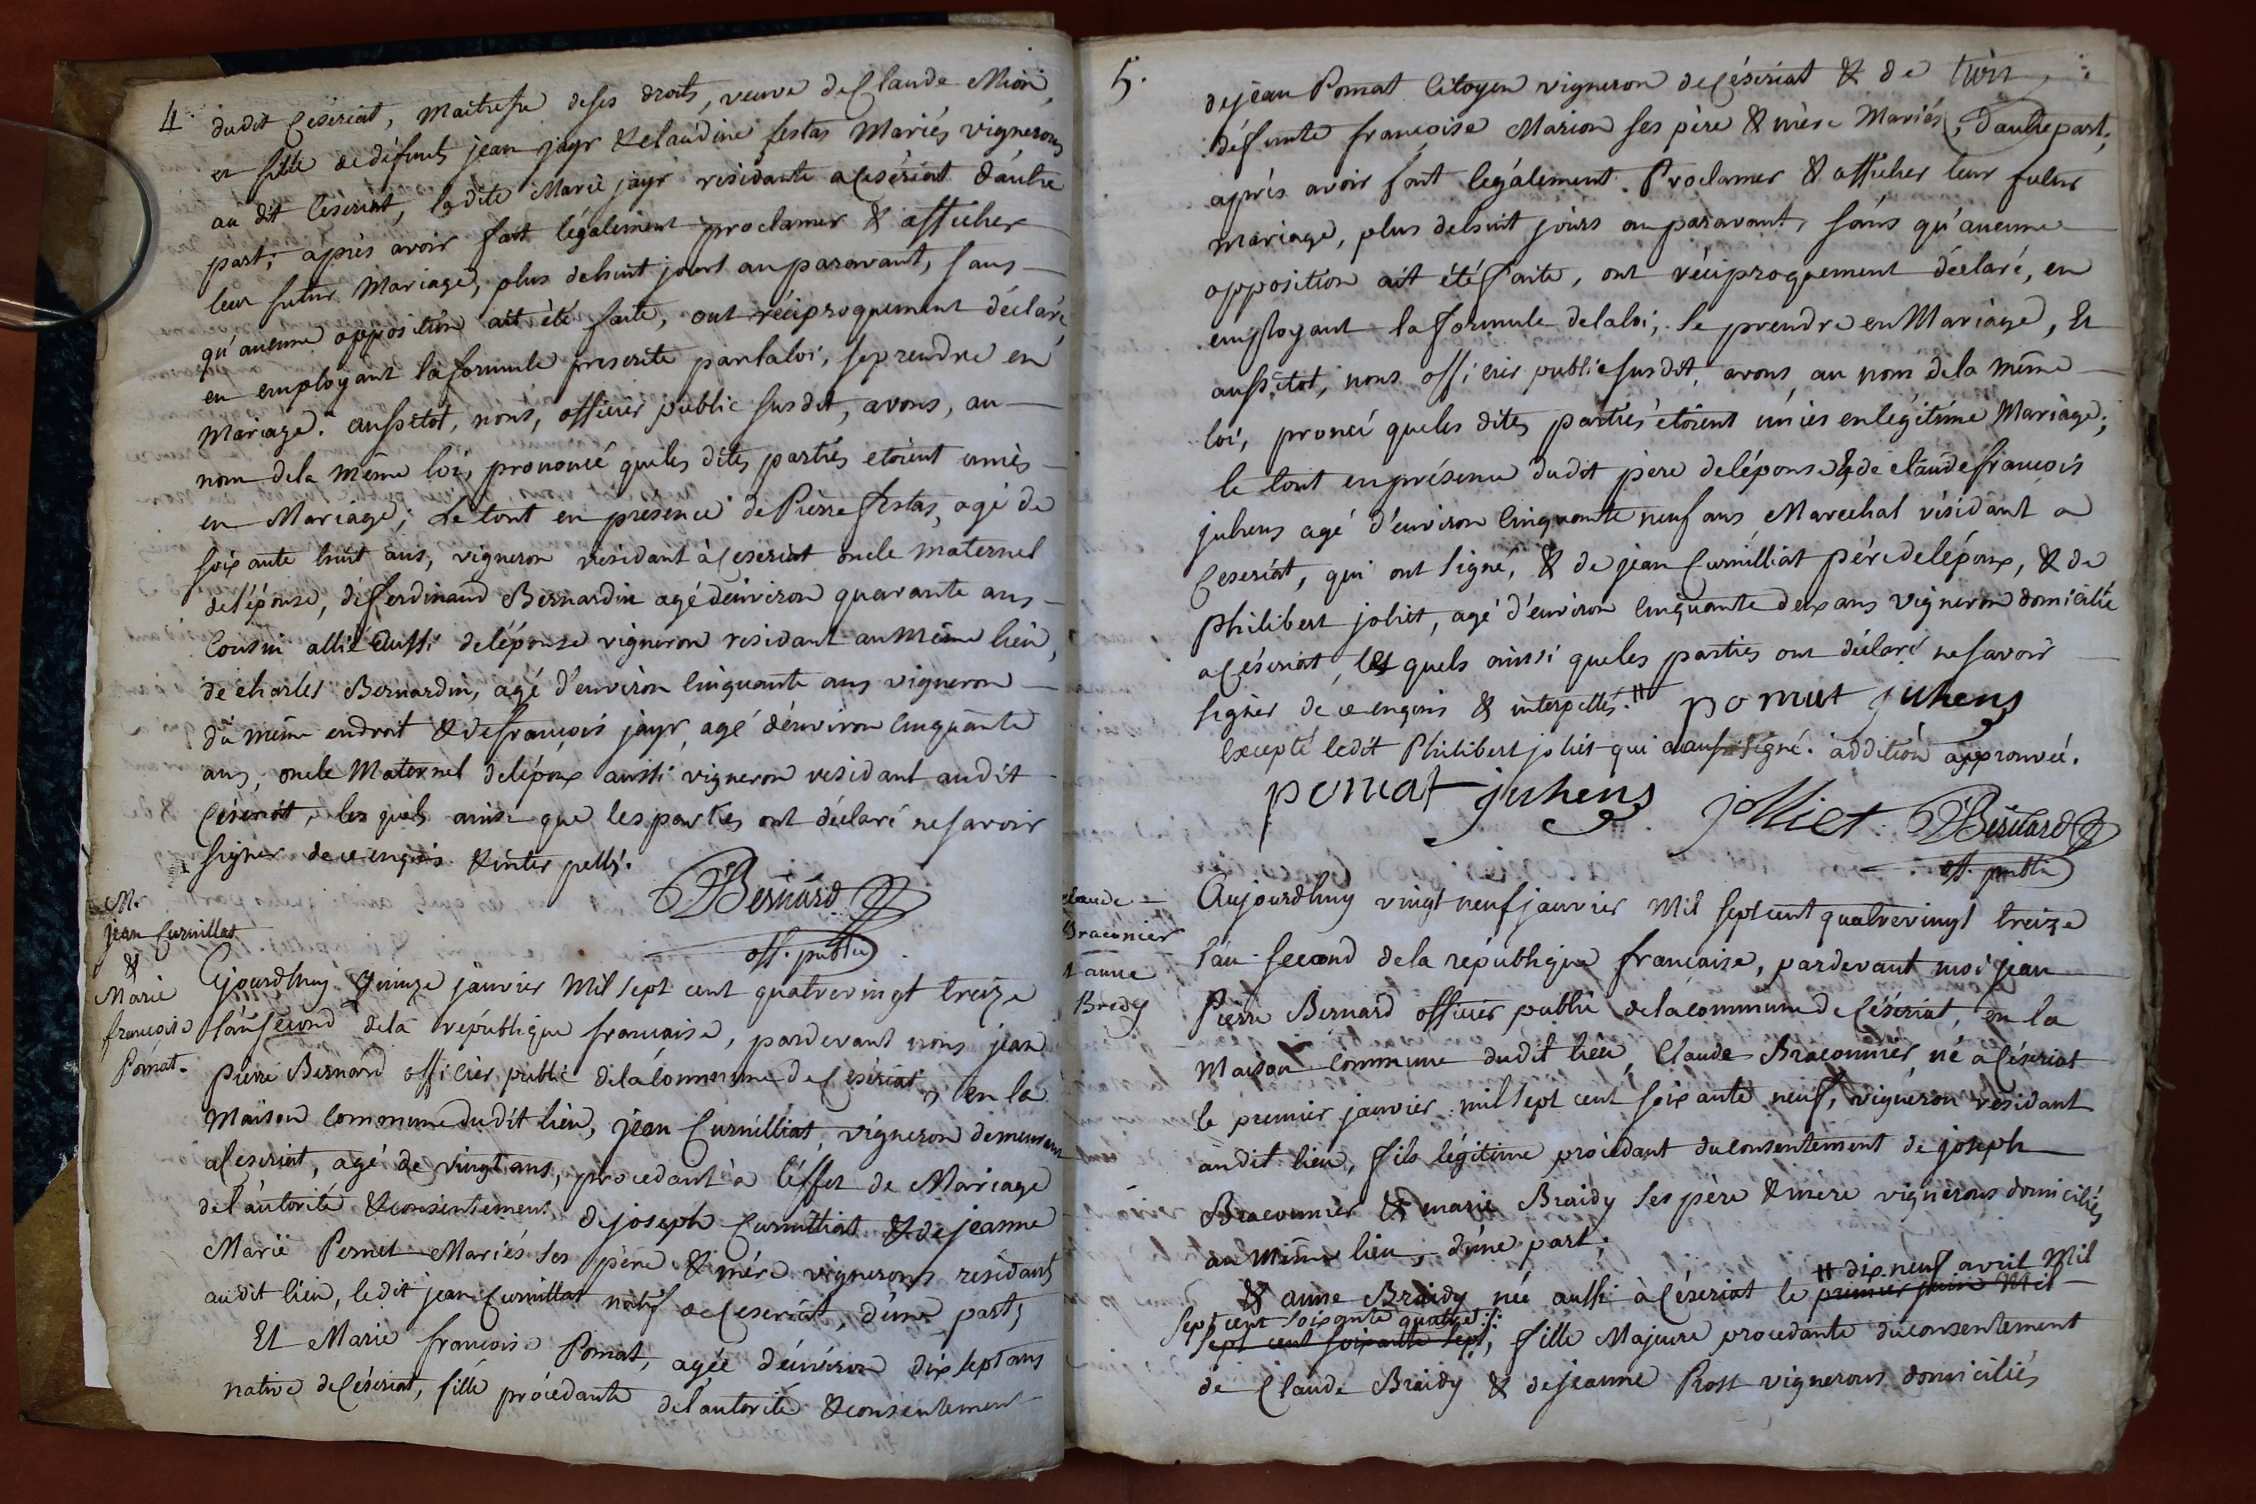 4
dudit Céseriat, Maitresse de ses droits, veuve de Claude Mion,
et fille de défunts jean jayr & claudine festas Mariés vignerons
au dit Céseriat, ladite Marie jayr residante a Céseriat d'autre
part; après avoir fait légalement proclamer & afficher
leur futur Mariage, plus de huit jours auparavant, sans
qu'aucune opposition ait été faite, ont réciproquement déclaré
en employant la formule prescrite par la loi, se prendre en
Mariage. aussitot, nous, officier public susdit, avons, au
nom de la même loi, prononcé que les dites parties etoient unies
en Mariage; Le tout en presence de Pierre festas, agé de
soixante huit ans, vigneron residant à Ceseriat oncle maternel
de l'épouse, de ferdinand Bernardin agé d'environ quarante ans
Cousin allié Aussi de l'épouse vigneron residant au Même lieu,
de charles Bernardin, agé d'environ Cinquante ans vigneron
du même endroit & de françois jayr, agé d'environ Cinquante
ans, oncle Maternel de l'époux aussi vigneron residant audit
Céseriat, les quels ainsi que les parties ont déclaré ne savoir
signer de ce enquis & inter pellés.
Bernard
off. public
M.
jean Curnillat
&
Marie
françoise
Pomat.
Cjourdhuy quinze janvier Mil sept cent quatrevingt treize
l'an second de la république francaise, pardevant nous jean
Pierre Bernard officier public de la Commune de Ceseriat, en la
Maison Commune dudit lieu, jean Curnilliat, vigneron demeurant
a Ceseriat, agé de vingt ans, procedant à l'éffet de Mariage
de l'autorité & consentement de joseph Curnilliat & de jeanne
Marie Pernet Mariés ses père & mère vignerons residants
audit lieu, le dit jean Curnillat natif de Ceseriat, d'une part,
Et Marie françoise Pomat, agée d'environ dix sept ans
native de Céseriat, fille procedante de l'autorité & consentement
5.
de jean Pomat Citoyen vigneron de Céseriat & de
défunte françoise Marion ses père & mère Mariés, d'autre part,
après avoir fait legalement Proclamer & afficher leur futur
mariage, plus de huit jours auparavant, sans qu'aucune
opposition ait été faite, ont réciproquement déclaré, en
employant la formule de la loi, se prendre en Mariage, Et
aussitot, nous officier public susdit, avons au nom de la même
loi, pronci que les dites parties étoient unies en légitime Mariage;
le tout en présence dudit père de l'épouse & de claude françois
juhens agé d'environ Cinquante neuf ans Marechal résidant a
Ceseriat, qui ont signé, & de jean Curnilliat père de l'époux, & de
Philibert joliet, agé d'environ Cinquante deux ans vigneron domicilié
a Céseriat, les quels ainsi que les parties ont déclaré ne savoir
signer de ce enquis & interpellés. # pomat juhens
Excepté ledit Philibert joliet qui a aussi signé. addition approuvée.
pomat juhens jolliet Bernard
off. public
claude
Braconier
& anne
Bredy
Aujourdhuy vingt neuf janvier Mil sept cent quatrevingt treize
l'an second de la république francaise, pardevant moi jean
Pierre Bernard officier public de la commune de Céseriat, en la
Maison Commune dudit lieu, Claude Braconnier, né a Céseriat
le premier janvier mil sept cent soixante neuf, vigneron residant
audit lieu, fils légitime procédant du consentement de joseph
Braconnier & marie Braidy ses père & mère vignerons domiciliés
au même lieu, d'une part;
# dix neuf avril Mil
& anne Braidy née aussi à Céseriat le premier juin Mil
sept cent soixante quatre
sept cent soixante sept, fille Majeure procedante du consentement
de Claude Braidy & de jeanne Rost vignerons domiciliés